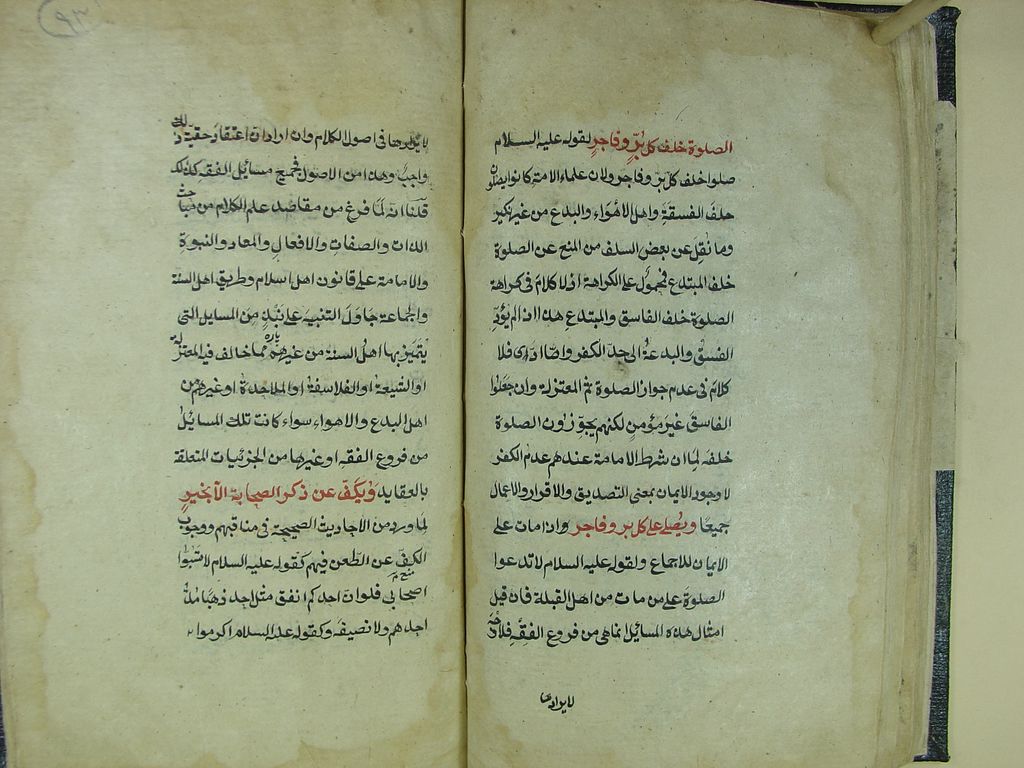 الصلوة خلف كل بر وفاجر لقوله عليه السلام
صلوا خلف كل بر وفاجر ولان علماء الامة كانوا يصلون
خلف الفسقة واهل الاهواء والبدع من غير نكير
وما نقل عن بعض السلف من المنع عن الصلوة
خلف المبتدع فمحمول على الكراهة اذ لا كلام فى كراهة
الصلوة خلف الفاسق والمبتدع هذا اذا لم يؤد
الفسق والبدعة الى حد الكفر واما اذا ادى فلا
كلام فى عدم جواز الصلوة ثم المعتزلة وان جعلوا
الفاسق غير مؤمن لكنهم يجوزون الصلوة
خلفه لما ان شرط الامامة عندهم عدم الكفر
لا وجود الايمان بمعنى التصديق والاقرار والاعمال
جميعا ويصلى على كل بر وفاجر اذا مات على
الايمان للاجماع ولقوله عليه السلام لا تدعوا
الصلوة على من مات من اهل القبلة فان قيل
امثال هذه المسائل انما هى من فروع الفقه فلا وجه
لايرادها
٩٣
لايرادها فى اصول الكلام وان اراد ان اعتقاد حقية ذلك
واجب وهذا من الاصول فجميع مسائل الفقه كذلك
قلنا انه لما فرغ من مقاصد علم الكلام من مباحث
الذات والصفات والافعال والمعاد والنبوة
والامامة على قانون اهل اسلام وطريق اهل السنة
والجماعة حاول التنبيه على نبذ من المسايل التى
يتميز بها اهل السنة من غيرهم مما خالف فيه المعتزلة
او الشيعة او الفلاسفة او الملاحدة او غيرهم من
اهل البدع والاهواء سواء كانت تلك المسايل
من فروع الفقه او غيرها من الجزئيات المتعلقة
بالعقايد ويكف عن ذكر الصحابة الا بخير
لما ورد من الاحاديث الصحيحة فى مناقبهم ووجوب
الكف عن الطعن فيهم كقوله عليه السلام لا تسبوا
اصحابى فلو ان احدكم انفق مثل احد ذهبا ما بلغ مد
احدهم ولا نصيفه وكقوله عليه السلام اكرموا